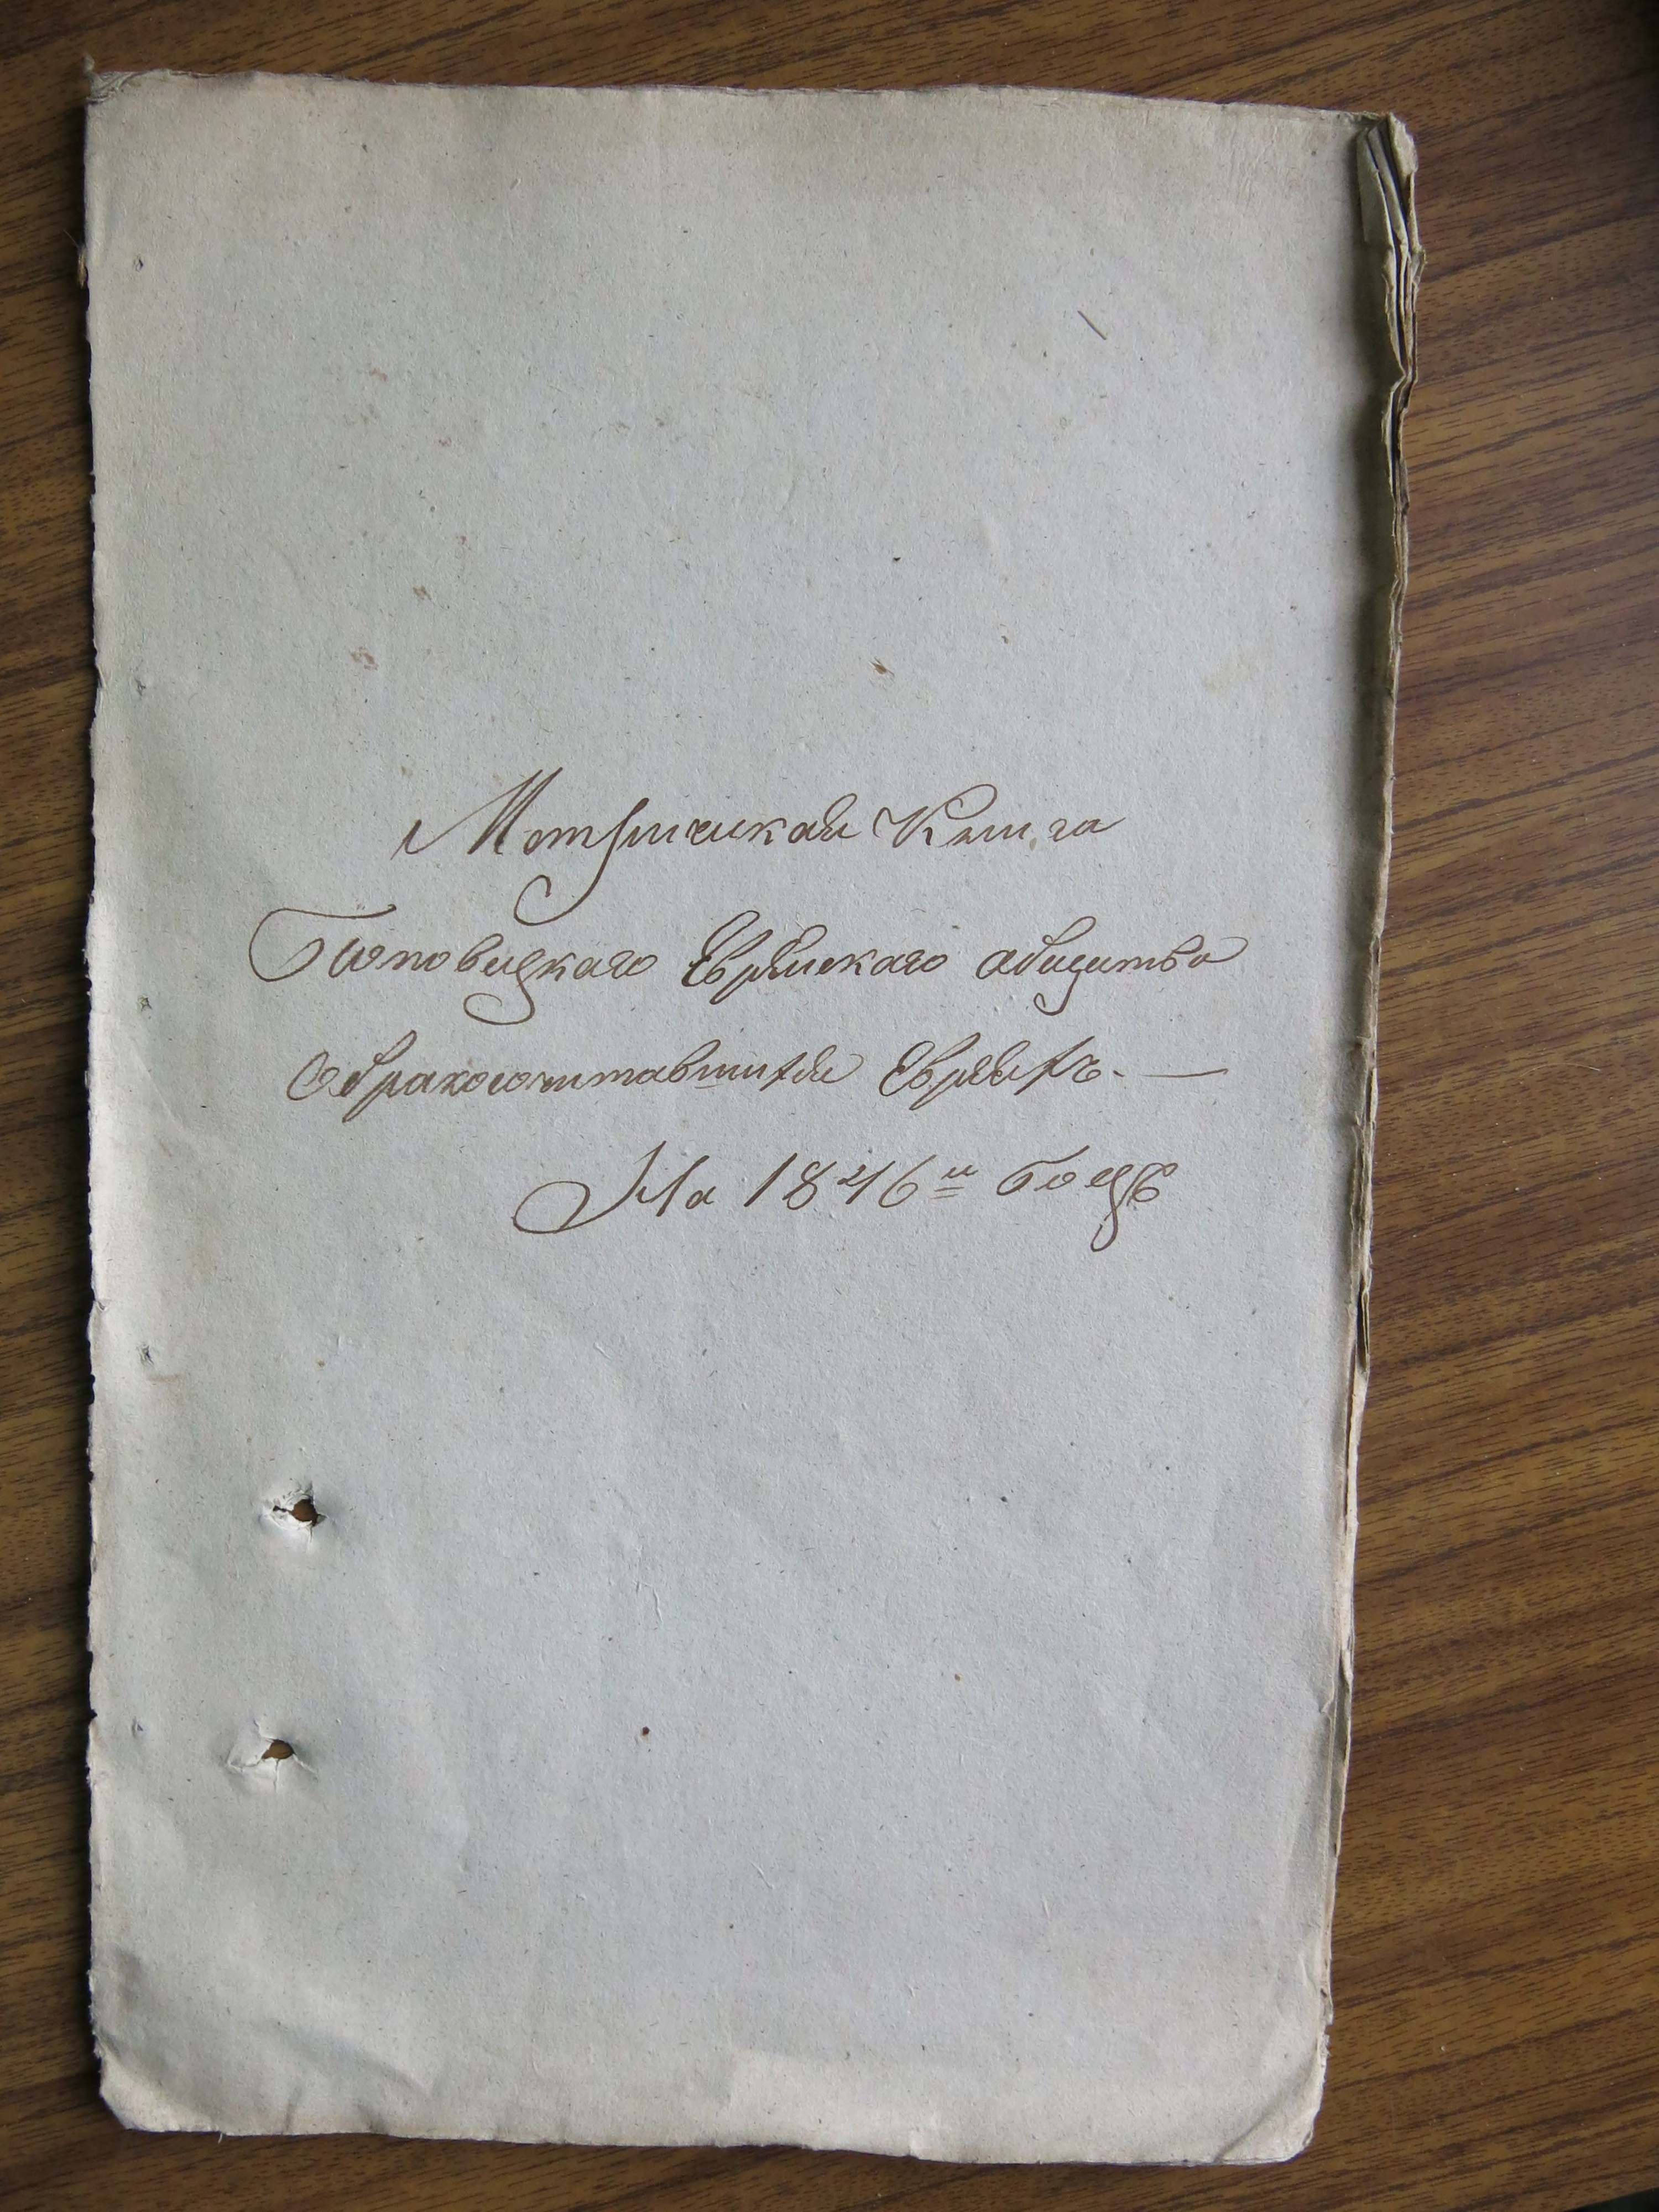 Метрическая Книга
Еврейскаго общества
О бракосочетавшихся Евреяхъ. —
На 1846й годъ